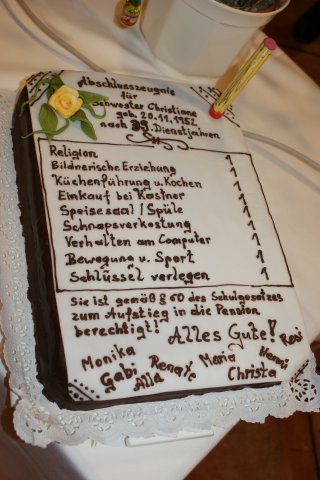 Abschlusszeugnis
für
Schwester Christiane
geb. 20.11.1952
nach 39 Dienstjahren
Religion 1
Bildnerische Erziehung 1
Küchenführung u. Kochen 1
Einkauf bei Kastner 1
Speisesaal / Spüle 1
Schnapsverkostung 1
Verhalten am Computer 1
Bewegung u. Sport 1
Schlüssel verlegen 1
Sie ist gemäß § 60 des Schulgesetzes
zum Aufstieg in die Pension
berechtigt!
Alles Gute!
Rosi
Monika
Renate
Maria
Hermi
Gabi
Alla
Christa